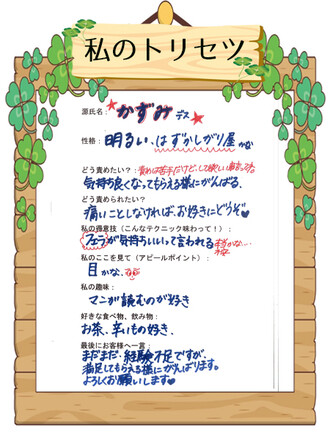 私のトリセツ
源氏名：かずみデス
性格：明るい、はずかしがり屋かな
どう責めたい？：責めは苦手だけど、して欲しい事言ってネ
気持ち良くなってもらえる様にがんばる。
どう責められたい？
痛いことしなければ、お好きにどうぞ♥
私の得意技（こんなテクニック味わって！）：
フェラが気持ちいいって言われる
私のここを見て（アピールポイント）：
目かな、
私の趣味：
マンガ読むのが好き
好きな食べ物、飲み物：
お茶、辛いもの好き、
最後にお客様へ一言：
まだまだ、経験不足ですが、
満足してもらえる様にがんばります。
よろしくお願いします♥